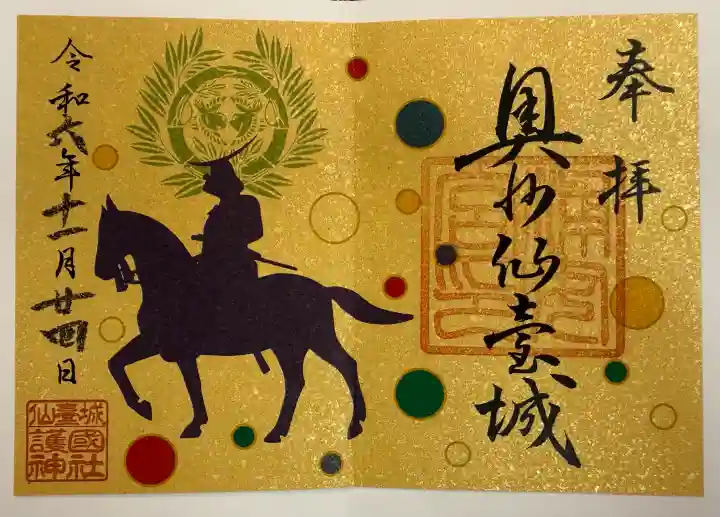 奉拝
奥州仙臺城
令和六年十一月廿四日
仙臺城
護國
神社